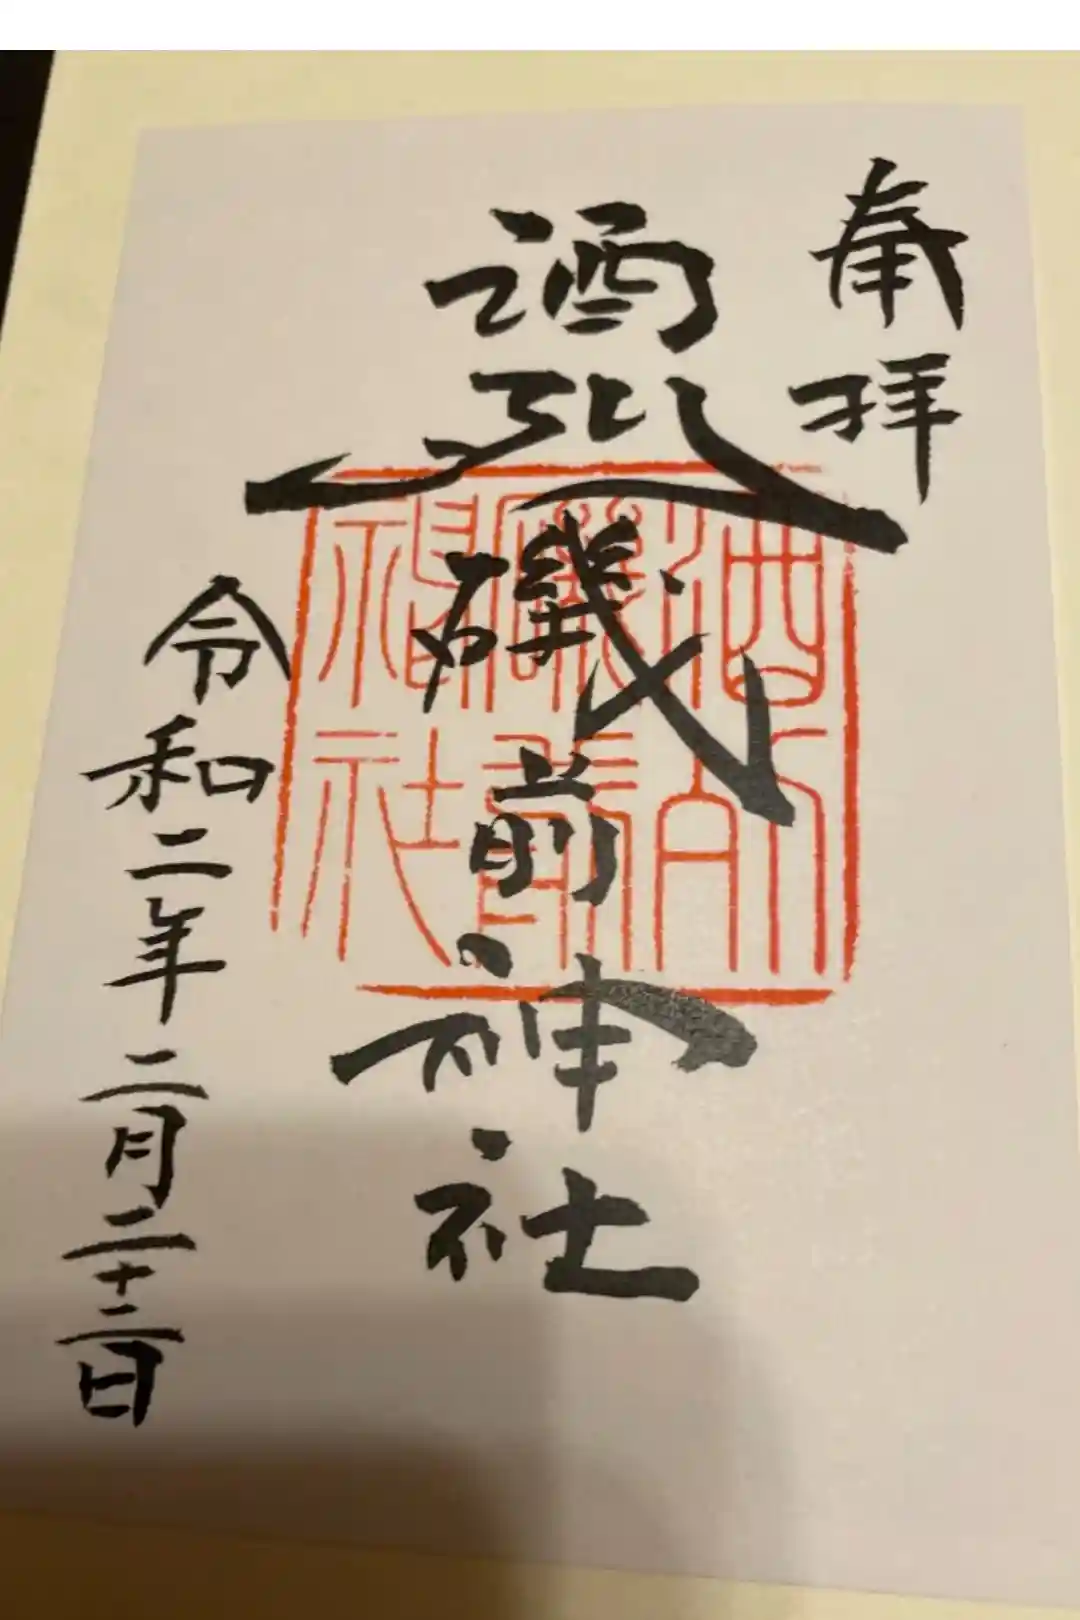 奉拝
酒列磯前神社
令和二年二月二十二日
酒列
磯前
神社